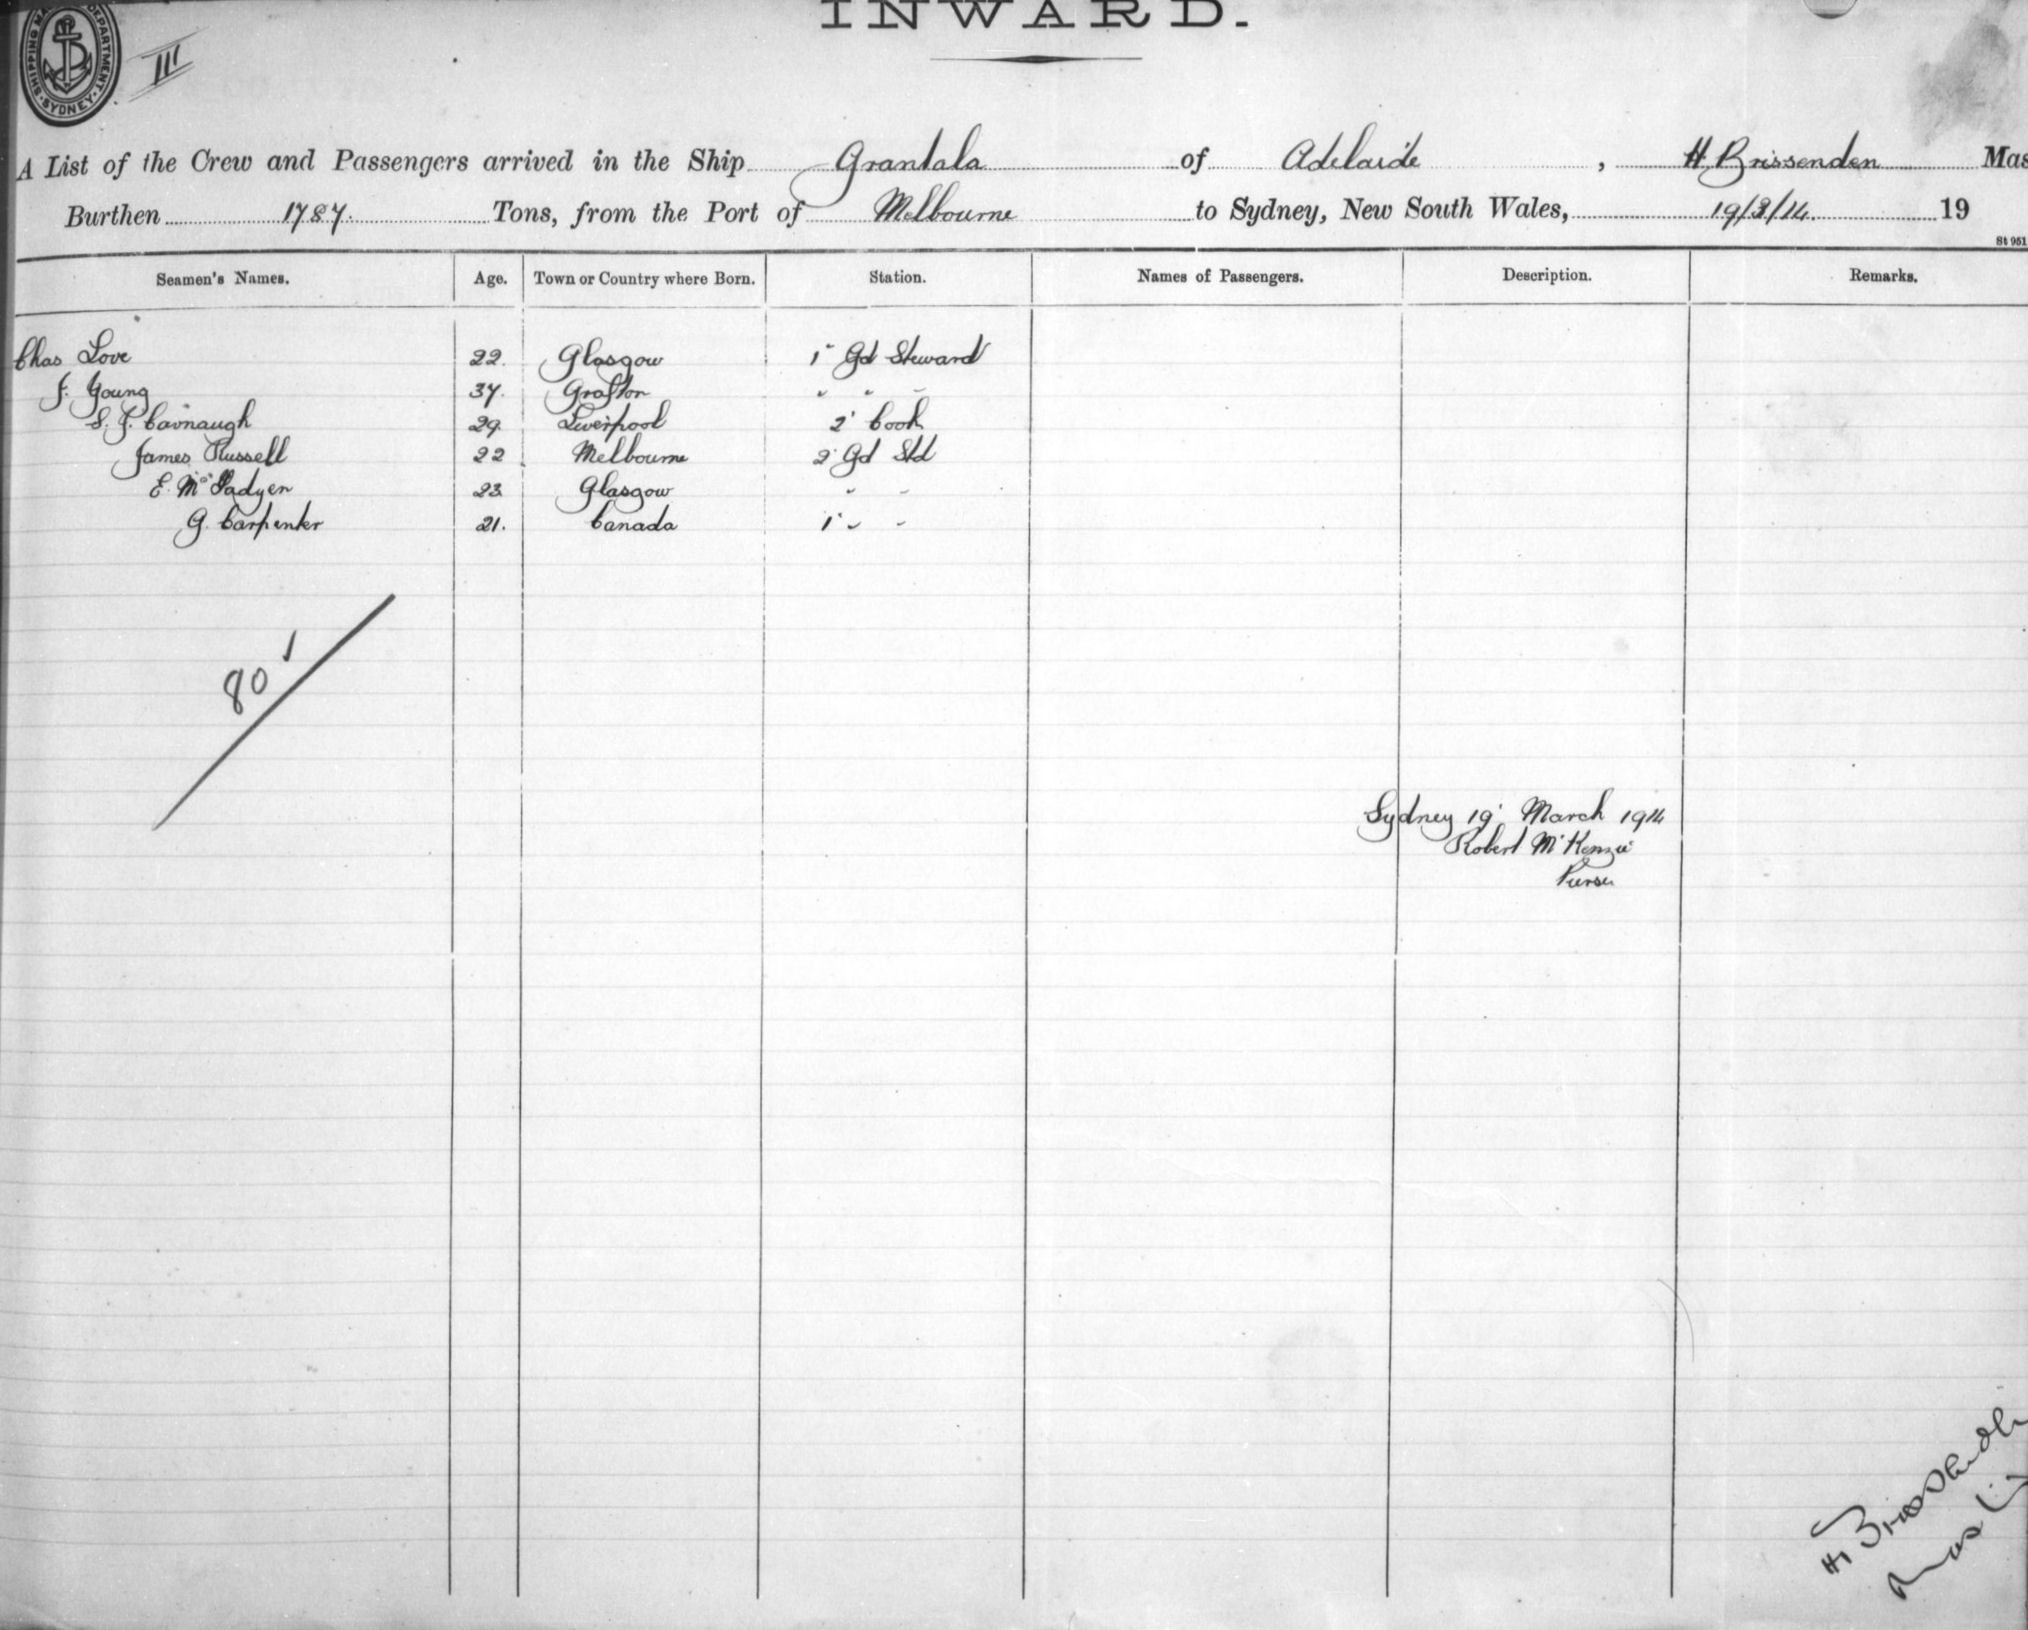 INWARD.
SHIPPING MA DEPARTMENT. SYDNEY.
III
A List of the Crew and Passengers arrived in the Ship Grantala of Adelaide, H. Brissenden Mas
Burthen 1787. Tons, from the Port of Melbourne to Sydney, New South Wales, 19/3/14 19
St 951
Seamen's Names. Age. Town or Country where Born. Station. Names of Passengers. Description. Remarks.
Chas Love 22. Glasgow 1" Gd Steward
J. Young 37. Grafton " " "
S. J. Cavnaugh 29. Liverpool 2' Cook
James Russell 22 Melbourne 2' Gd Std
E. Mc Fadyen 23. Glasgow " "
G. Carpenter 21. Canada 1" " "
80
Sydney 19' March 1914
Robert McKenzie
Purser
H Brissenden
Master